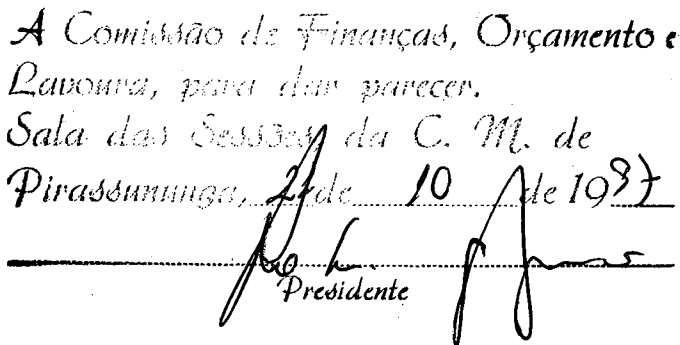 A Comissão de Finanças, Orçamento e
Lavoura, para dar parecer.
Sala das Sessões, da C. M. de
Pirassununga, de 10 de 1987
Presidente